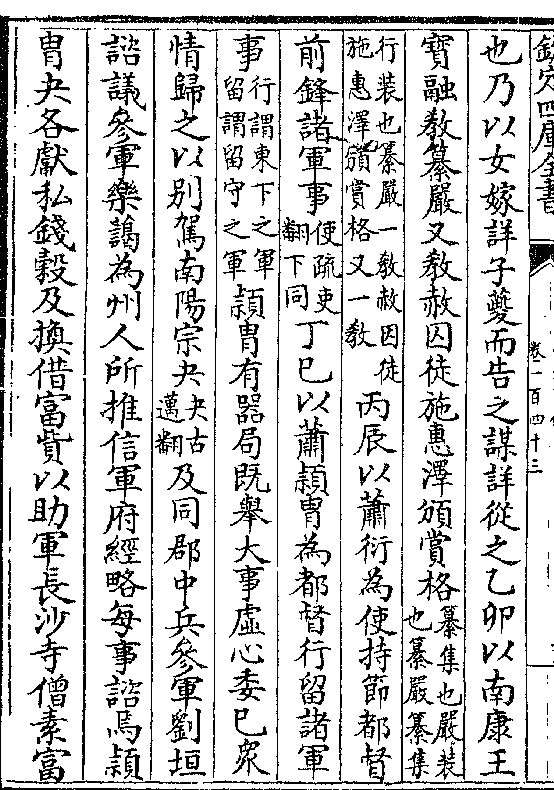 欽定四庫全書
卷一百四十三
也乃以女嫁詳子夔而告之謀詳從之乙卯以南康王
寶融敎纂嚴又敎赦囚徒施惠澤頒賞格纂集也嚴裝也纂嚴纂集
行裝也纂嚴一敎赦囚徒施惠澤頒賞格又一敎丙辰以蕭衍為使持節都督
前鋒諸軍事使疏吏翻下同丁巳以蕭頴胄為都督行留諸軍
事行謂東下之軍留謂留守之軍頴胄有器局既舉大事虛心委已衆
情歸之以別駕南陽宗夬夬古邁翻及同郡中兵參軍劉垣
諮議參軍樂藹為州人所推信軍府經略每事諮焉頴
胄夬各獻私錢穀及換借富貲以助軍長沙寺僧素富